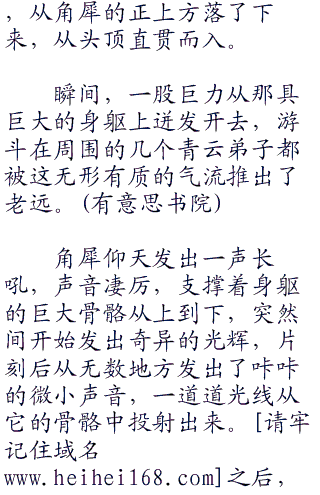 ，从角犀的正上方落了下
来，从头顶直贯而入。
瞬间，一股巨力从那具
巨大的身躯上迸发开去，游
斗在周围的几个青云弟子都
被这无形有质的气流推出了
老远。(有意思书院)
角犀仰天发出一声长
吼，声音凄厉，支撑着身躯
的巨大骨骼从上到下，突然
间开始发出奇异的光辉，片
刻后从无数地方发出了咔咔
的微小声音，一道道光线从
它的骨骼中投射出来。[请牢
记住域名
www.heihei168.com]之后，